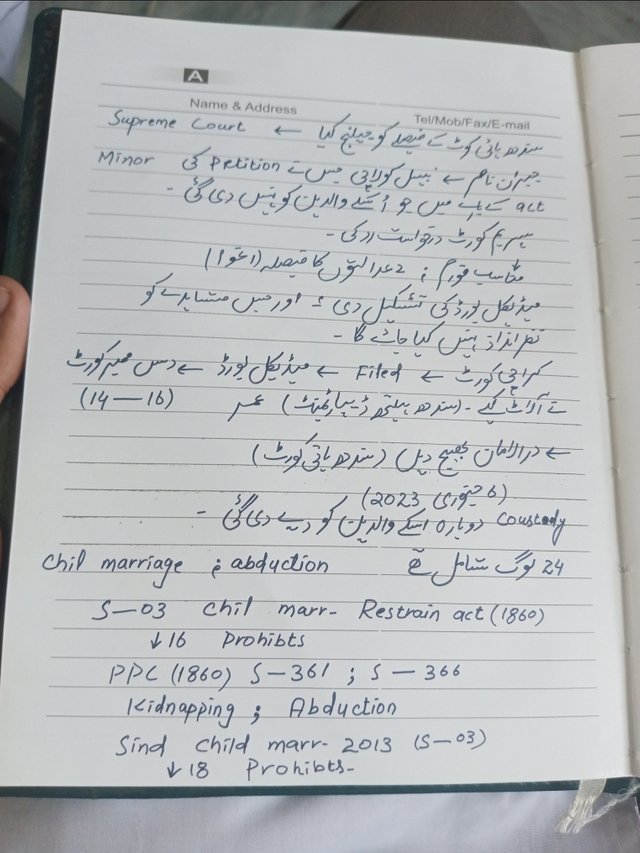 A
Name & Address
Tel/Mob/Fax/E-mail
سندھ ہائی کورٹ کے فیصلے کو چیلنج کیا ← Supreme Court
جبران ناصر ← اپیل کورٹ جس نے Petition کی Minor
act کے بارے میں جو اُسکے والدین کو نہیں دی گئی -
سپریم کورٹ درخواست رد کی -
مناسب فورم ; عدالتوں کا فیصلہ (اغوا)
میڈیکل بورڈ کی تشکیل دی ; اور جس مشاہدے کو
نظر انداز نہیں کیا جائے گا -
کراچی کورٹ ← Filed ← میڈیکل بورڈ ← دس ممبر
نے - (سندھ ہیلتھ ڈیپارٹمنٹ) عمر (14 — 16)
← دارالامان بھیج دیں (سندھ ہائی کورٹ)
(6 جنوری 2023)
Coustedy دوبارہ اسکے والدین کو دے دی گئی -
24 لوگ شامل تھے
Chil marriage ; abduction
S-03 Chil marr- Restrain act (1860)
↓16 Prohibts
PPC (1860) S-361 ; S-366
Kidnapping ; Abduction
Sind Child marr- 2013 (S-03)
↓18 Prohibts-